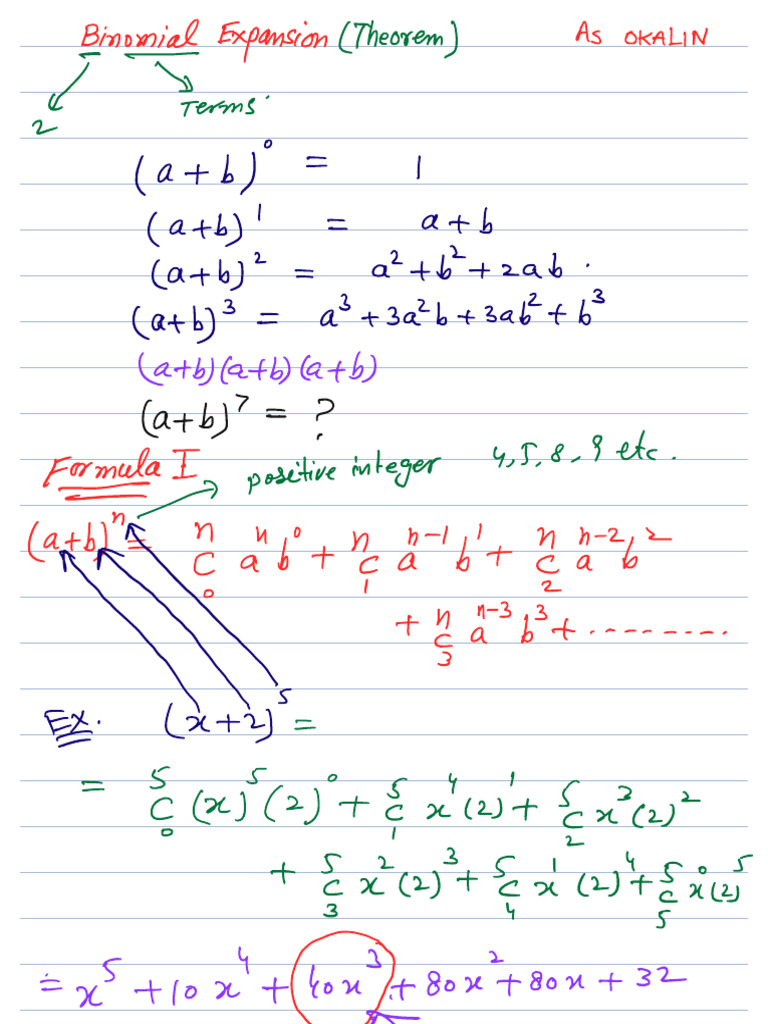 Binomial Expansion (Theorem) As OKALIN
2 Terms.
(a+b)⁰ = 1
(a+b)¹ = a+b
(a+b)² = a²+b²+2ab.
(a+b)³ = a³+3a²b+3ab²+b³
(a+b)(a+b)(a+b)
(a+b)⁷ = ?
Formula I positive integer 4, 5, 8, 9 etc.
(a+b)ⁿ = ⁿC₀ aⁿb⁰ + ⁿC₁ aⁿ⁻¹b¹ + ⁿC₂ aⁿ⁻²b²
+ ⁿC₃ aⁿ⁻³b³ + .........
Ex. (x+2)⁵ =
= ⁵C₀ (x)⁵(2)⁰ + ⁵C₁ x⁴(2)¹ + ⁵C₂ x³(2)²
+ ⁵C₃ x²(2)³ + ⁵C₄ x¹(2)⁴ + ⁵C₅ x⁰(2)⁵
= x⁵ + 10x⁴ + 40x³ + 80x² + 80x + 32